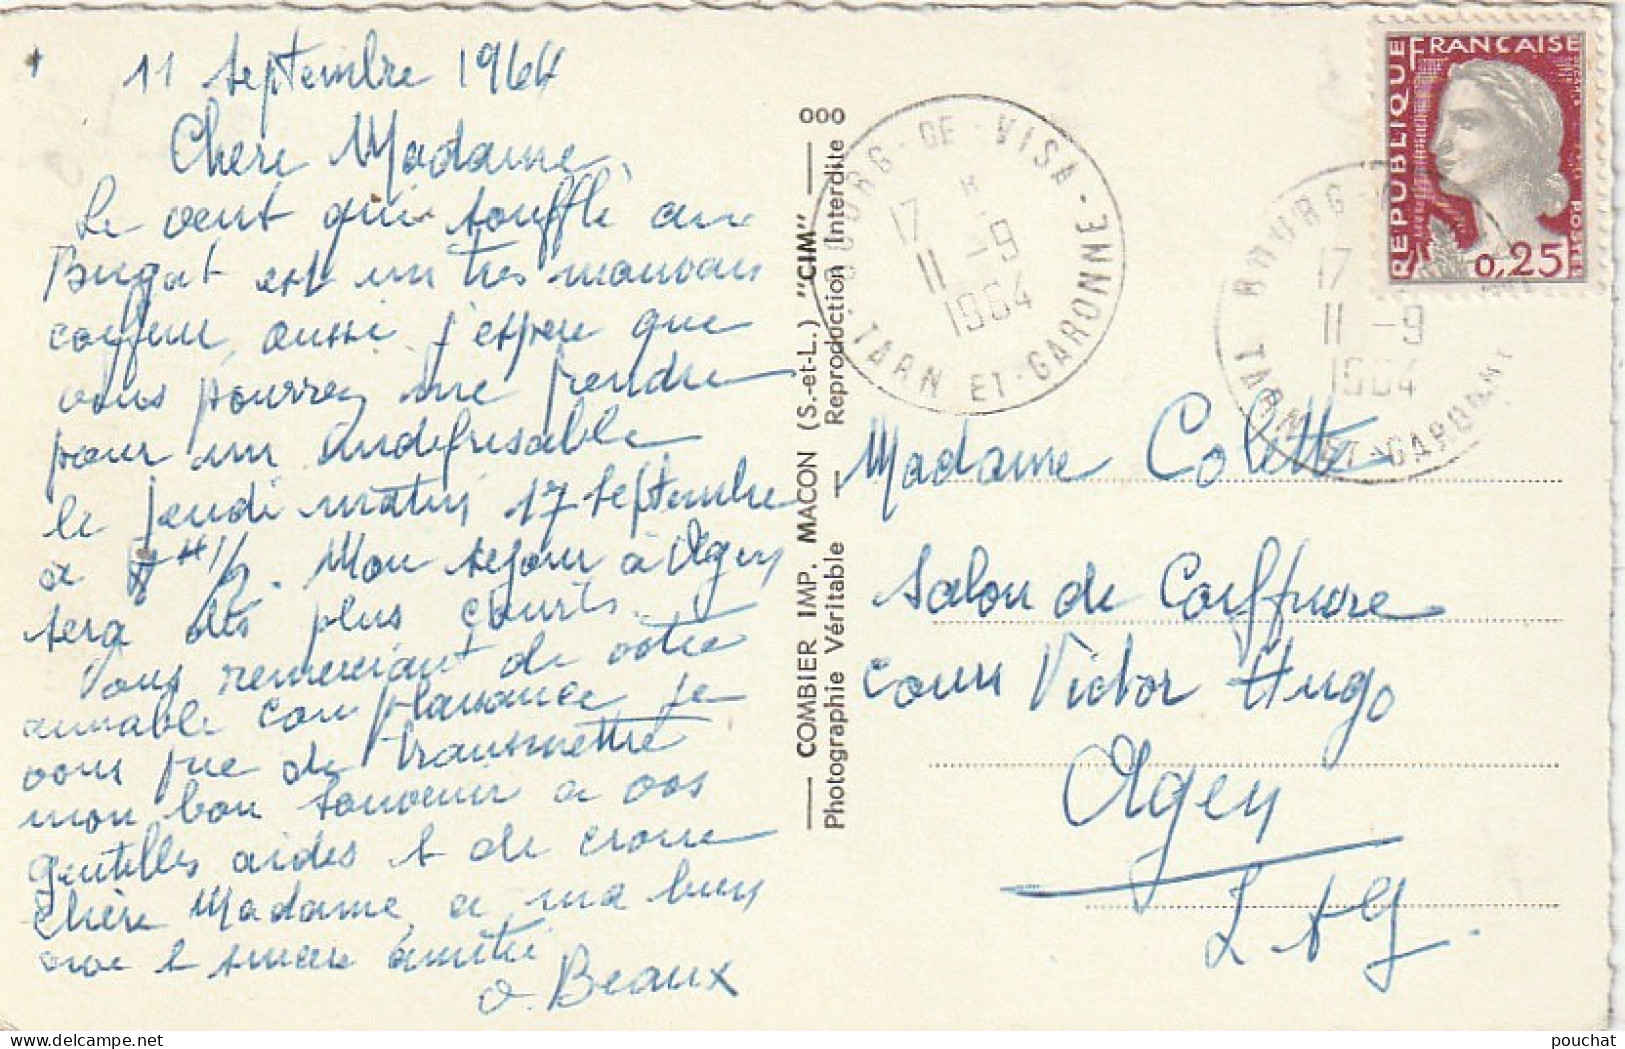 11 septembre 1964
Chère Madame,
Le vent qui souffle au
Bugat est un très mauvais
coiffeur, aussi j'espère que
vous pourrez me prendre
pour un indéfrisable
le jeudi matin 17 septembre
a 8 H 1/2. Mon séjour à Agen
sera des plus courts.
Vous remerciant de votre
aimable complaisance je
vous prie de transmettre
mon bon souvenir a vos
gentilles aides et de croire
Chère Madame, a ma bien
vive et sincère amitié
O. Beaux
COMBIER IMP. MACON (S.-et-L.) "CIM" 000
Photographie Véritable — Reproduction Interdite
BOURG-DE-VISA
17 H
11 -9
1964
TARN ET-GARONNE
BOURG
17
11 -9
1964
TARN ET-GARONNE
REPUBLIQUE FRANÇAISE
POSTES
0,25
Madame Colette
Salon de Coiffure
cours Victor Hugo
Agen
L et G.
pouchat